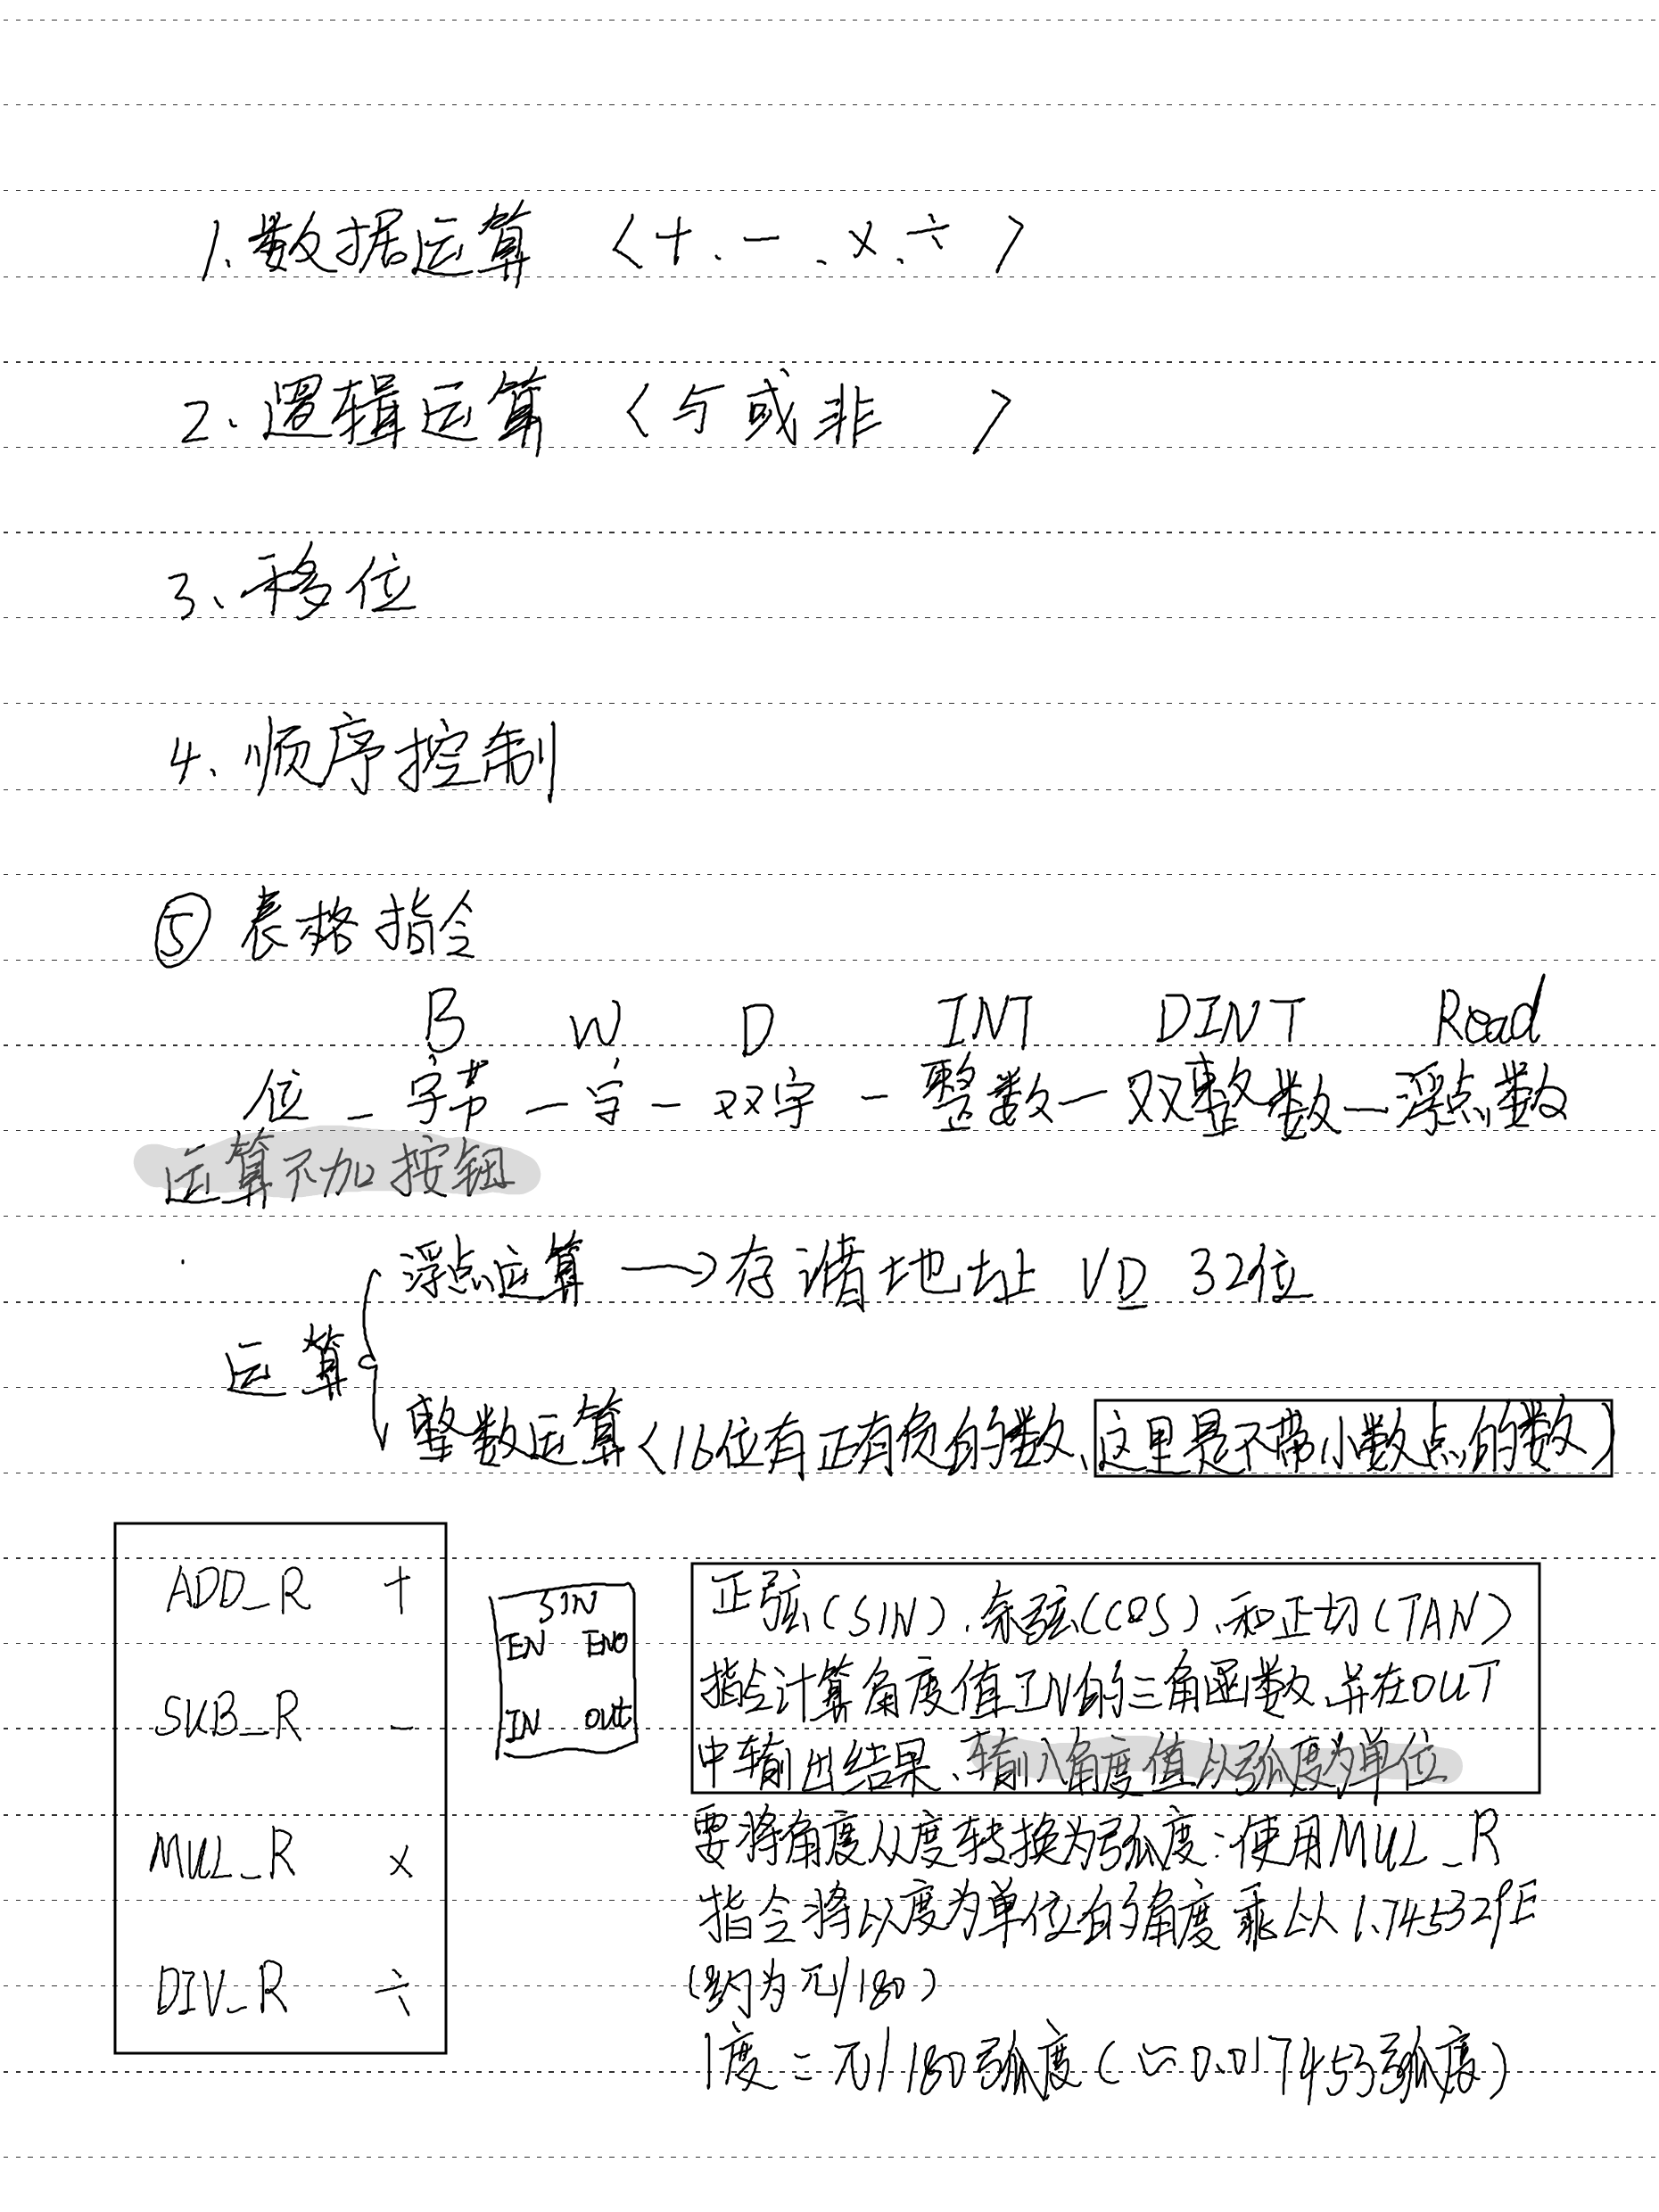 1.数据运算 〈+、-、×、÷ 〉
2、逻辑运算 〈与或非 〉
3、移位
4、顺序控制
⑤ 表格指令
B W D INT DINT Read
位-字节-字-双字-整数-双整数-浮点数
运算不加按钮
浮点运算→存诸地址 VD 32位
运算
整数运算〈16位有正有负的数、这里是不带小数点的数〉
ADD_R +
SUB_R -
MUL_R ×
DIV_R ÷
SIN
EN ENO
IN OUT
正弦(SIN)、余弦(COS)、和正切(TAN)
指令计算角度值IN的三角函数、并在OUT
中输出结果、输入角度值以弧度为单位
要将角度从度转换为弧度:使用MUL_R
指令将以度为单位的角度乘以1.745329E
(约为π/180)
1度=π/180弧度(≈0.017453弧度)